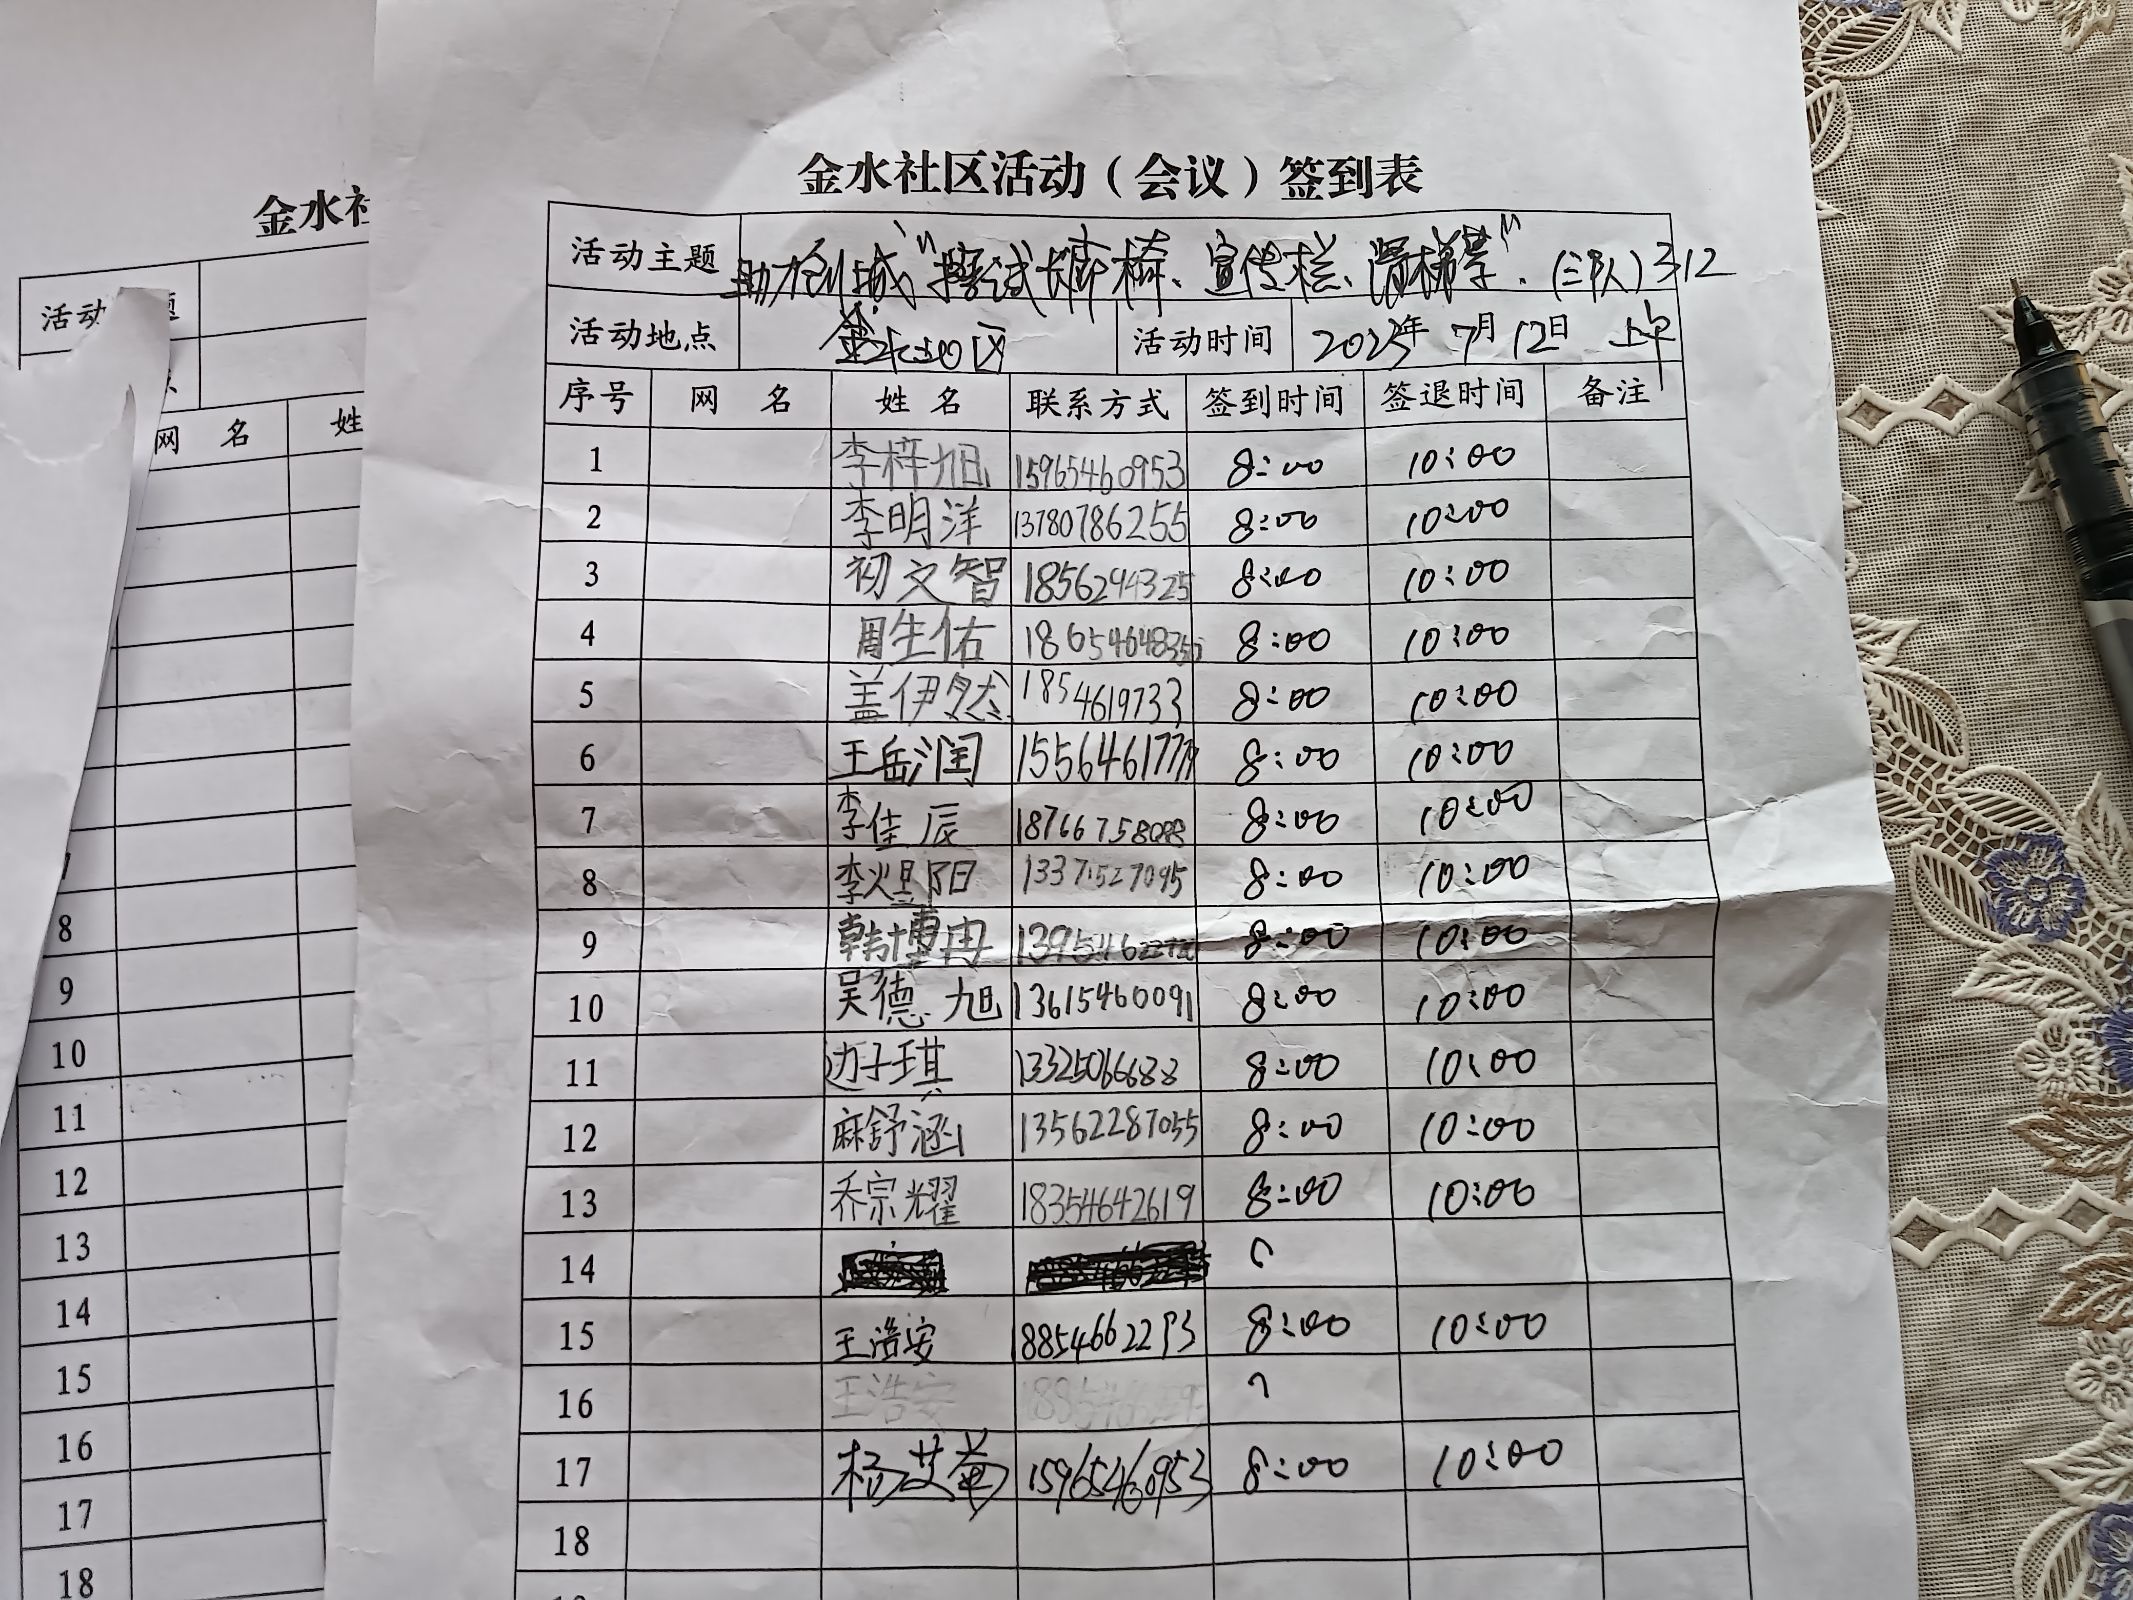 金水社区活动（会议）签到表
活动主题 助力创城"擦试长廊椅、宣传栏、滑梯等".(三队)312
活动地点 金水社区 活动时间 2023年7月12日 上午
序号 网 名 姓 名 联系方式 签到时间 签退时间 备注
1 李梓旭 15965460953 8:00 10:00
2 李明洋 13780786255 8:00 10:00
3 初文智 1856294325 8:00 10:00
4 周生佑 8:00 10:00
5 盖伊然 1854619733 8:00 10:00
6 王岳润 8:00 10:00
7 李佳辰 8:00 10:00
8 李煜阳 13371527095 8:00 10:00
9 韩博冉 8:00 10:00
10 吴德旭 13615460091 8:00 10:00
11 边子琪 13325066688 8:00 10:00
12 麻舒涵 13562287055 8:00 10:00
13 乔宗耀 18354642619 8:00 10:00
14
15 王浩安 8854662293 8:00 10:00
16 王浩安
17 杨艾菴 15965460953 8:00 10:00
18
金水社
活动 题
网 名 姓
8
9
10
11
12
13
14
15
16
17
18